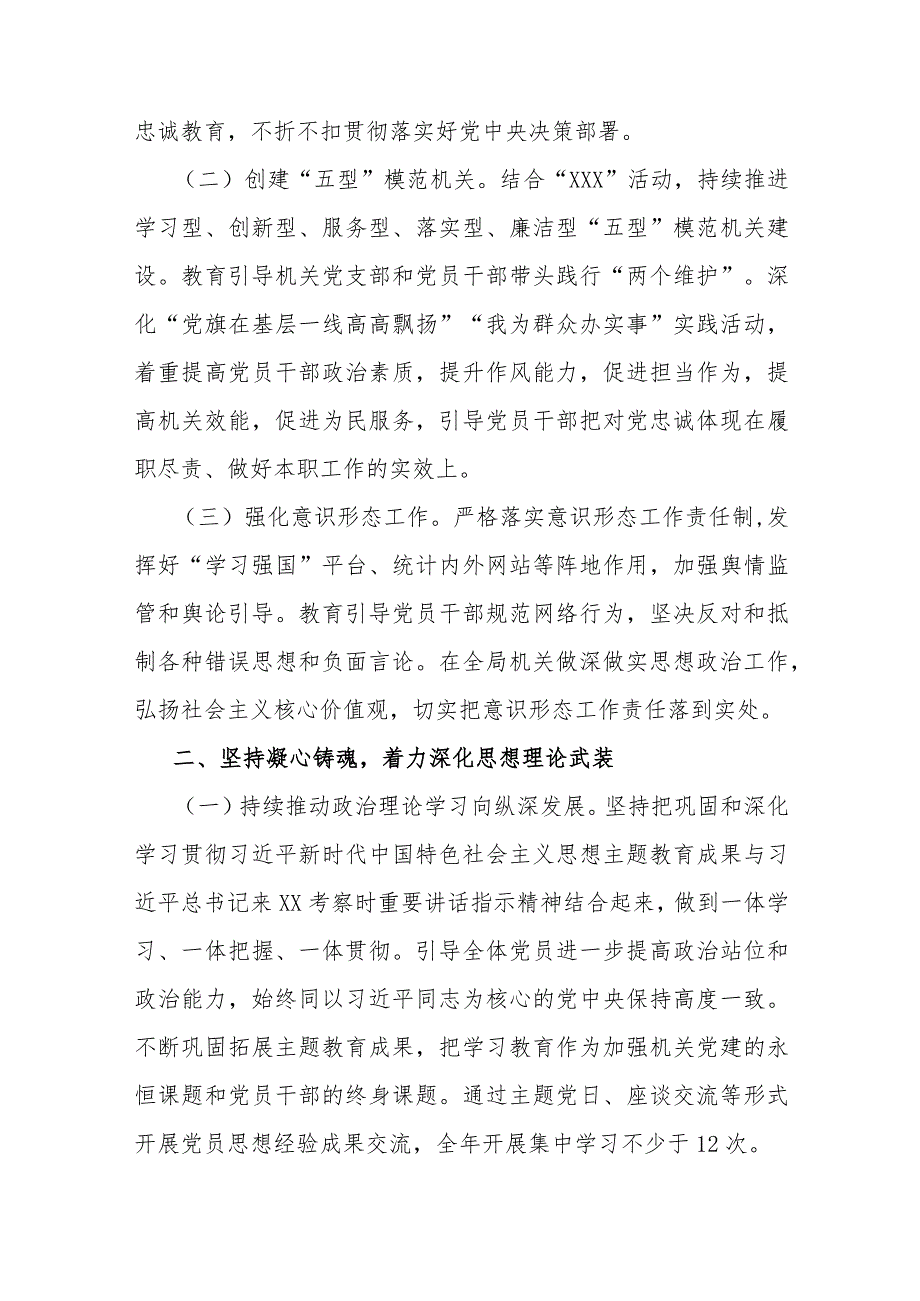 忠诚教育，不折不扣贯彻落实好党中央决策部署。
（二）创建“五型”模范机关。结合“XXX”活动，持续推进
学习型、创新型、服务型、落实型、廉洁型“五型”模范机关建
设。教育引导机关党支部和党员干部带头践行“两个维护”。深
化“党旗在基层一线高高飘扬”“我为群众办实事”实践活动，
着重提高党员干部政治素质，提升作风能力，促进担当作为，提
高机关效能，促进为民服务，引导党员干部把对党忠诚体现在履
职尽责、做好本职工作的实效上。
（三）强化意识形态工作。严格落实意识形态工作责任制,发
挥好“学习强国”平台、统计内外网站等阵地作用，加强舆情监
管和舆论引导。教育引导党员干部规范网络行为，坚决反对和抵
制各种错误思想和负面言论。在全局机关做深做实思想政治工作，
弘扬社会主义核心价值观，切实把意识形态工作责任落到实处。
二、坚持凝心铸魂，着力深化思想理论武装
（一）持续推动政治理论学习向纵深发展。坚持把巩固和深化
学习贯彻习近平新时代中国特色社会主义思想主题教育成果与习
近平总书记来XX考察时重要讲话指示精神结合起来，做到一体学
习、一体把握、一体贯彻。引导全体党员进一步提高政治站位和
政治能力，始终同以习近平同志为核心的党中央保持高度一致。
不断巩固拓展主题教育成果，把学习教育作为加强机关党建的永
恒课题和党员干部的终身课题。通过主题党日、座谈交流等形式
开展党员思想经验成果交流，全年开展集中学习不少于12次。